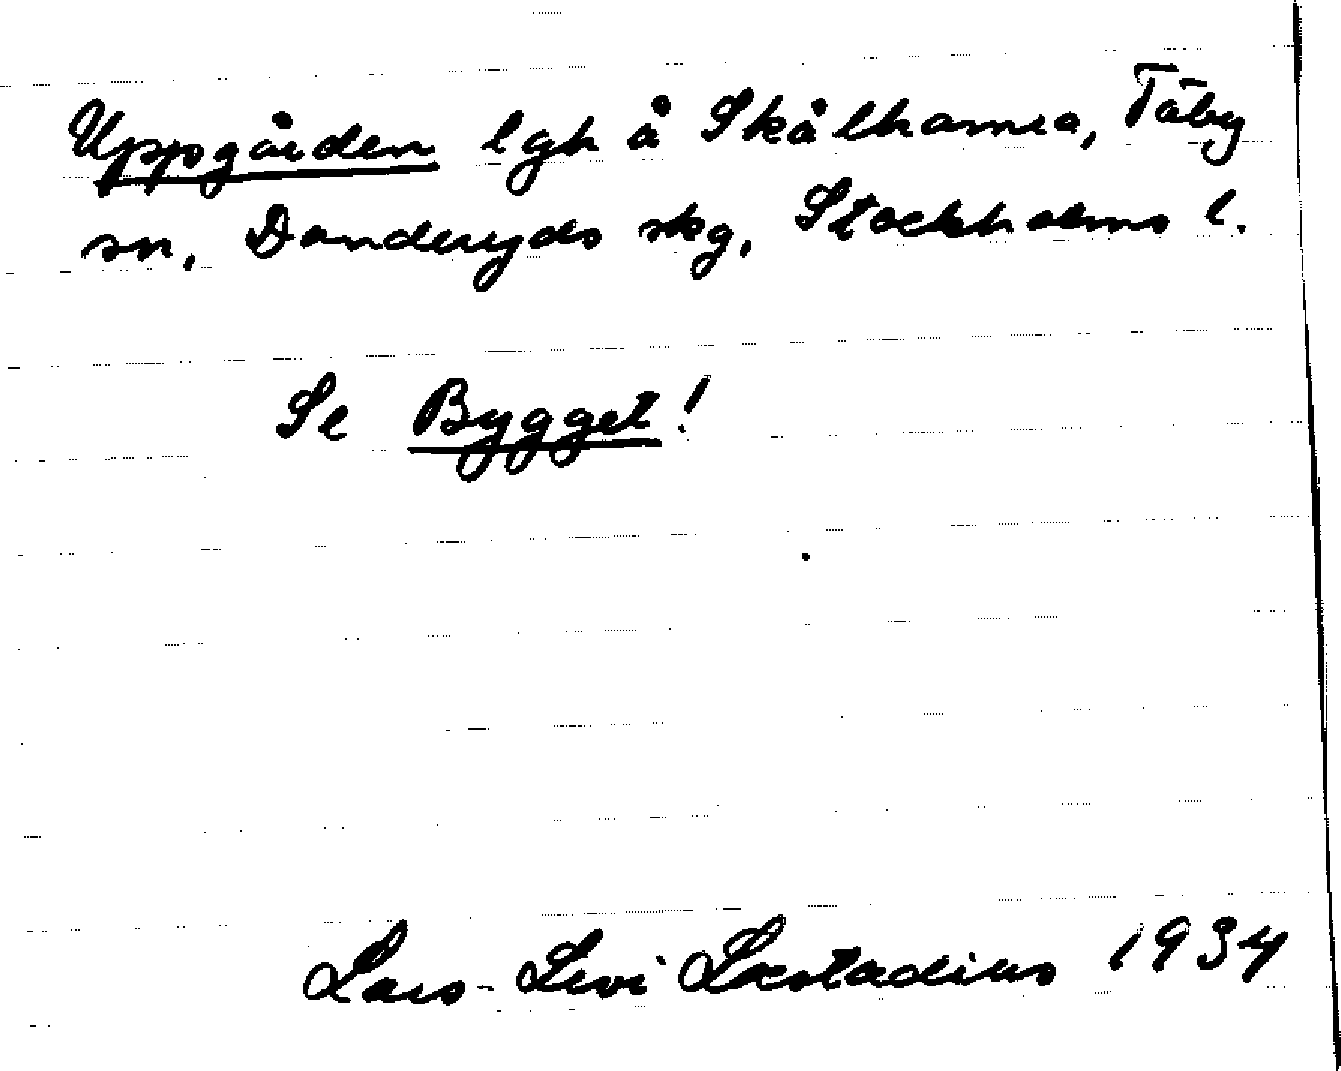 Uppgården lgh å Skålhamra, Täby
sn, Danderyds skg, Stockholms l.
Se Bygget!
Lars-Levi Læstadius 1934